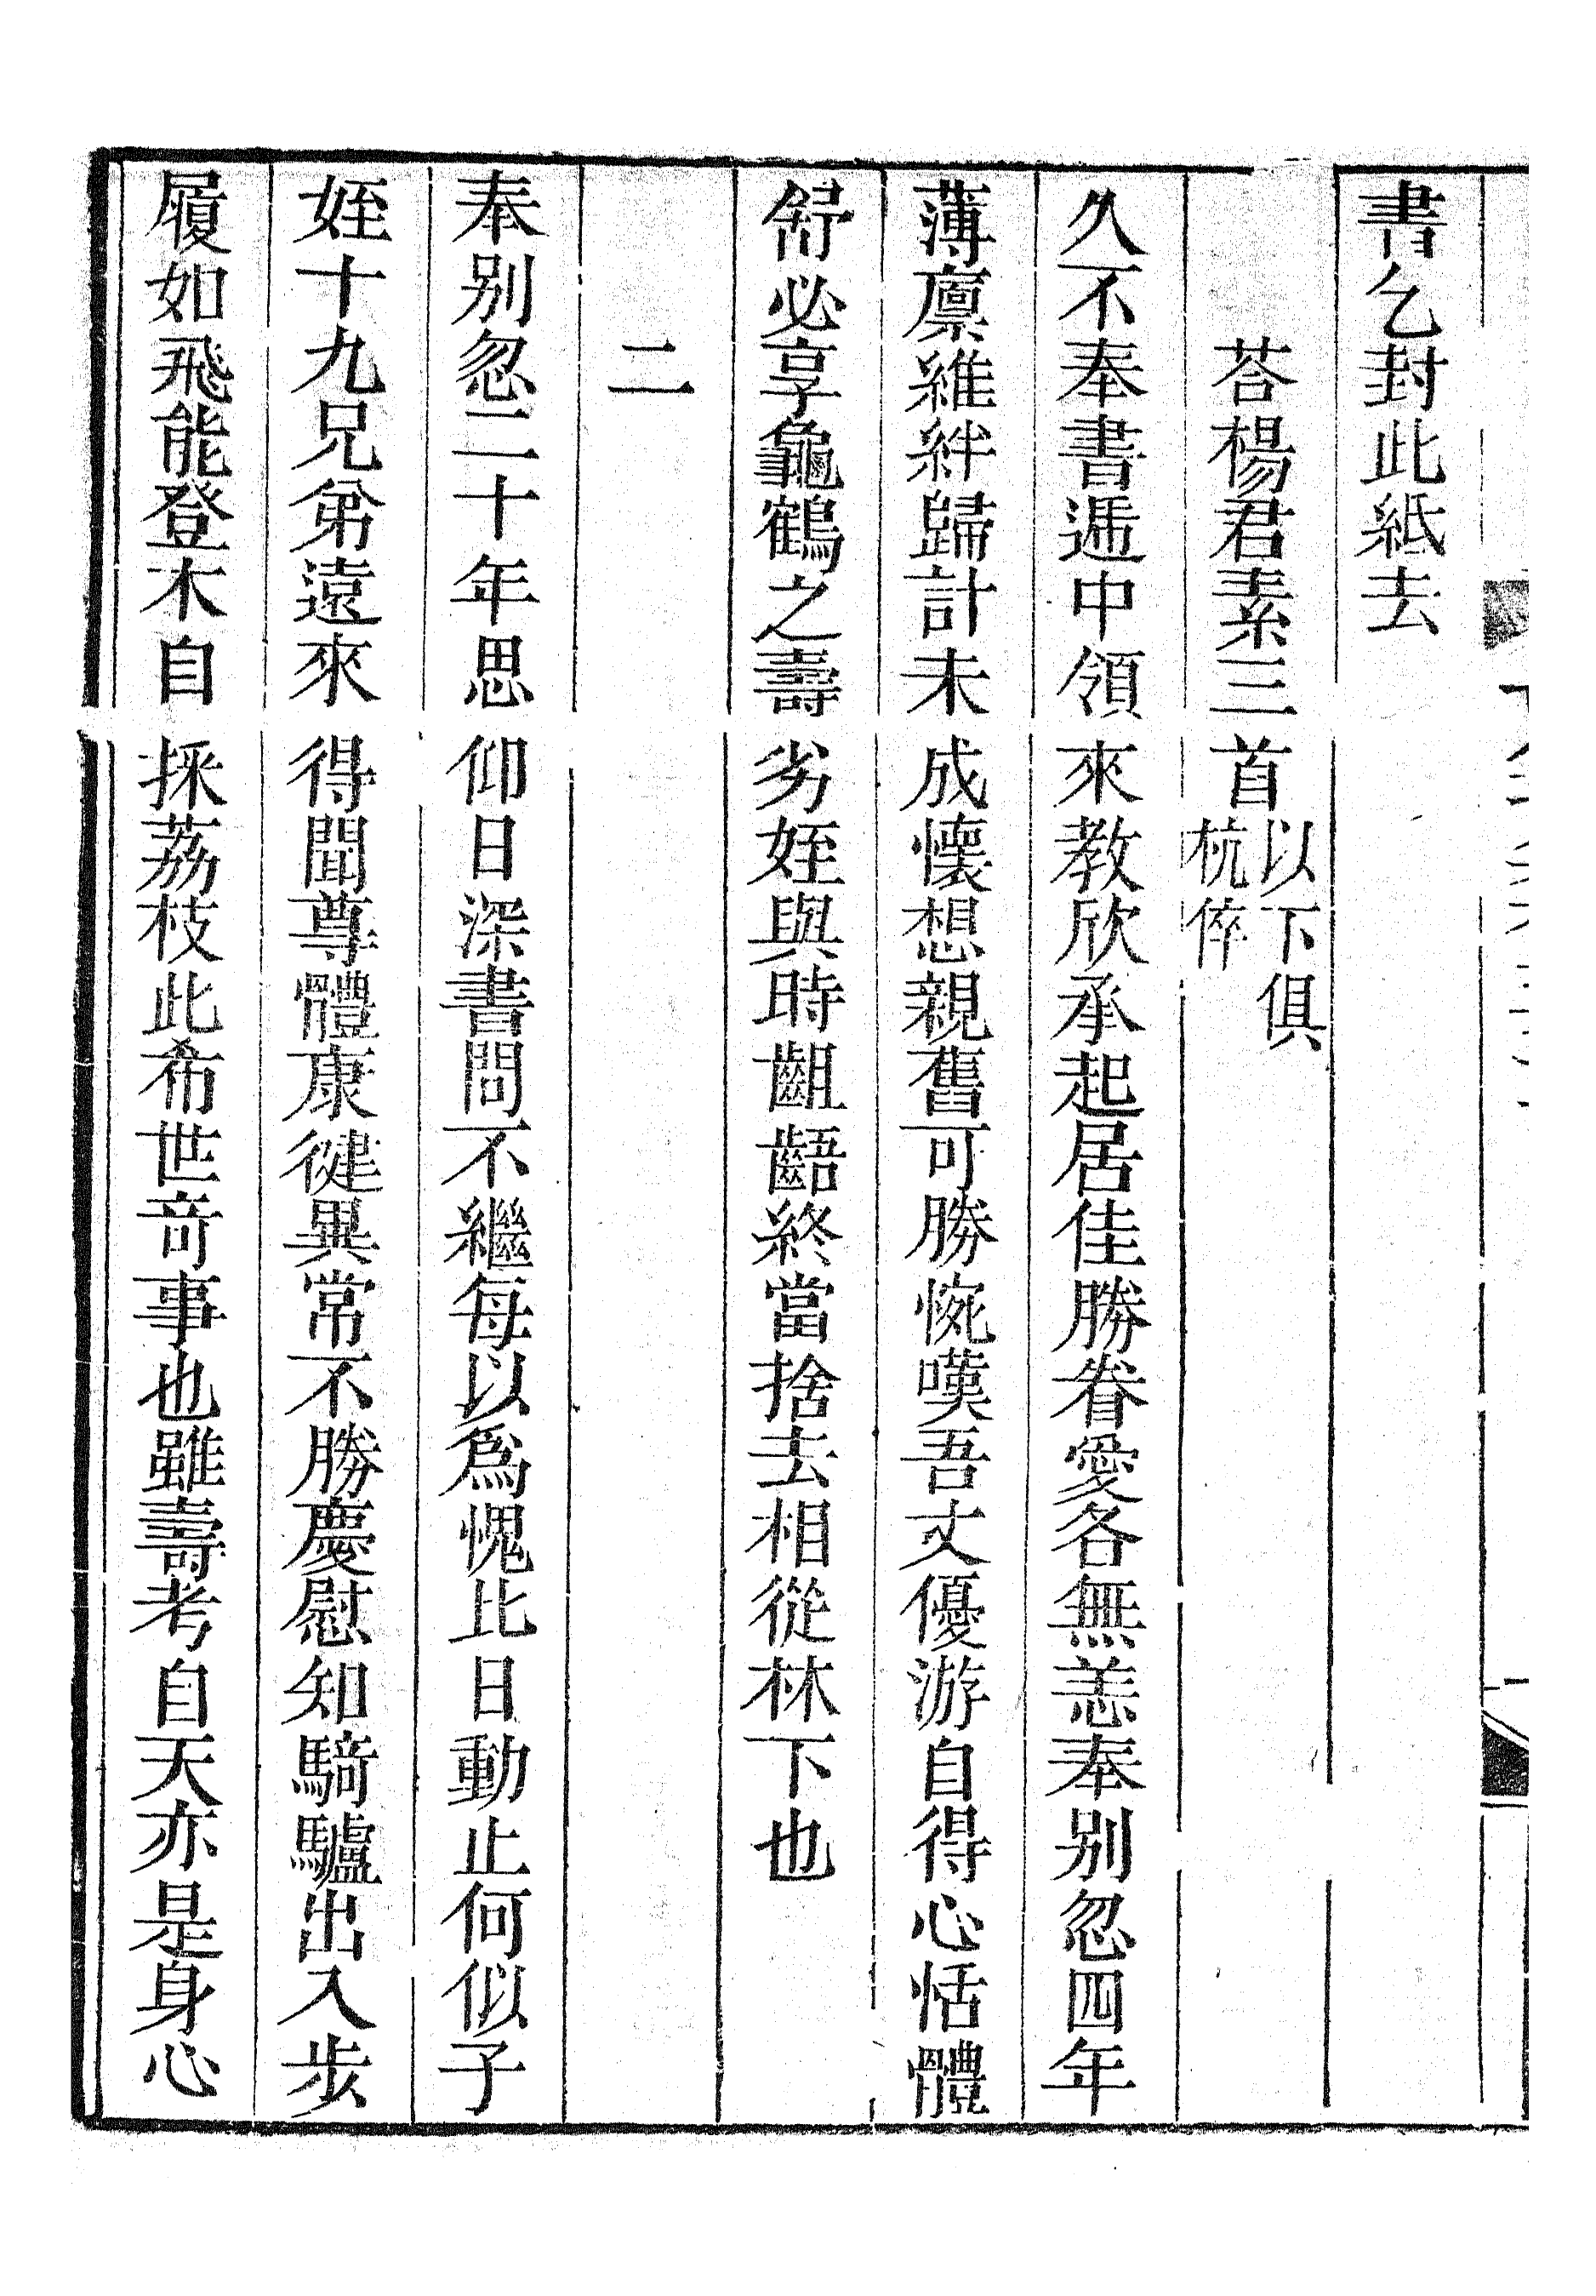 書乞封此紙去
荅楊君素三首以下俱杭倅
久不奉書遞中領來教欣承起居佳勝眷愛各無恙奉別忽四年
薄廪維絆歸計未成懷想親舊可勝惋嘆吾丈優游自得心恬體
舒必享龜鶴之壽劣姪與時齟齬終當捨去相從林下也
二
奉別忽二十年思仰日深書問不繼每以爲愧比日動止何似子
姪十九兄弟遠來得聞尊體康健異常不勝慶慰知騎驢出入步
履如飛能登木自採荔枝此希世奇事也雖壽考自天亦是身心